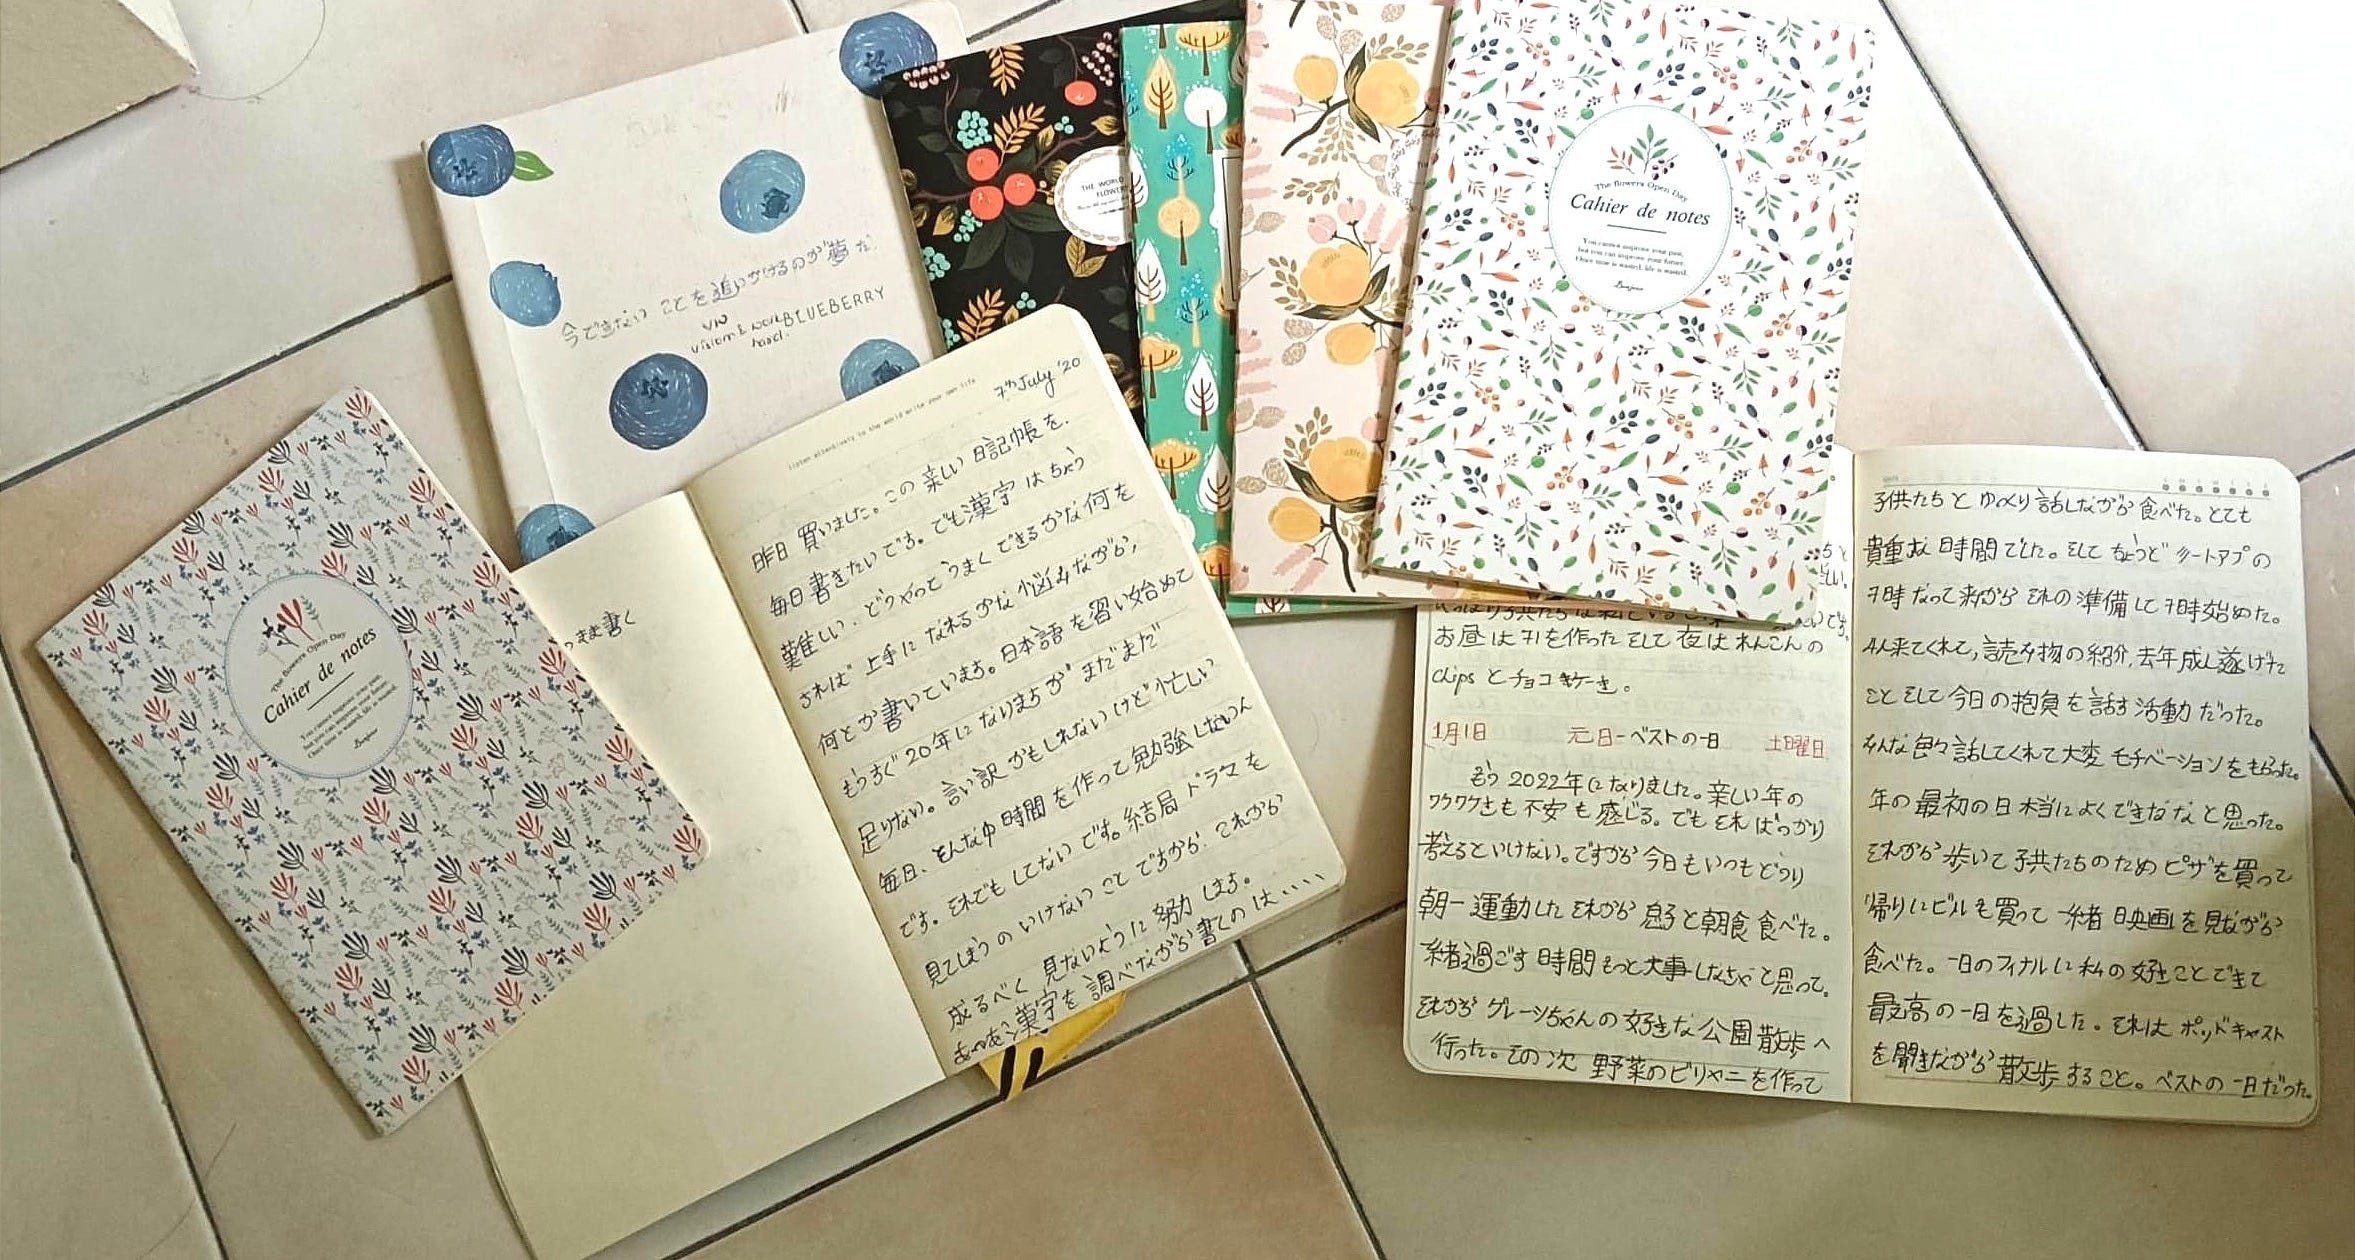 今できないことを追いかけるのが夢だ.
BLUEBERRY
vision & work
hard.
THE WORLD
FLOWER
The flowers Open Day
Cahier de notes
You cannot improve your past,
but you can improve your future.
Once time is wasted, life is wasted.
Bonjour
The flowers Open Day
Cahier de notes
You cannot improve your past,
but you can improve your future.
Once time is wasted, life is wasted.
Bonjour
まま書く
listen attentively to the world write your own life
7th July '20
昨日買いました。この新しい日記帳を.
毎日書きたいです。でも漢字はちょう
難しい.どうやってうまくできるかな何を
されば上手になれるかな悩みながら,
何とか書いています。日本語を習い始めて
もうすぐ20年になりますがまだまだ
足りない。言い訳かもしれないけど忙しい
毎日、そんな中時間を作って勉強しないん
です。それでもしてないです。結局ドラマを
見てしまうのいけないことですから.これから
成るべく見ないように努力します。
あっあう漢字を調べながら書くのは、、、、
お昼は を作ったそして夜はれんこんの
chipsとチョコケーキ。
1月1日 元日-ベストの一日 土曜日
もう2022年になりました。新しい年の
ワクワクさも不安も感じる。でもそればっかり
考えるといけない。ですから今日もいつもどうり
朝一運動したそれから息子と朝食食べた。
一緒過ごす時間もっと大事しなちゃと思って。
それからグレーシちゃんの好きな公園散歩へ
行った。その次野菜のビリヤニを作って
子供たちとゆっくり話しながら食べた。とても
貴重な時間でした。そしてちょうどミートアプの
7時なって来からそれの準備して7時始めた。
4人来てくれて,読み物の紹介,去年成し遂げた
ことそして今日の抱負を話す活動だった。
みんな色々話してくれて大変モチベーションをもらった。
年の最初の日本当によくできたなと思った。
それから歩いて子供たちのためピザを買って
帰りにビルも買って一緒日映画を見ながら
食べた。一日のフィナルに私の好きことできて
最高の一日を過した。それはポッドキャスト
を聞きながら散歩すること。ベストの一日だった。